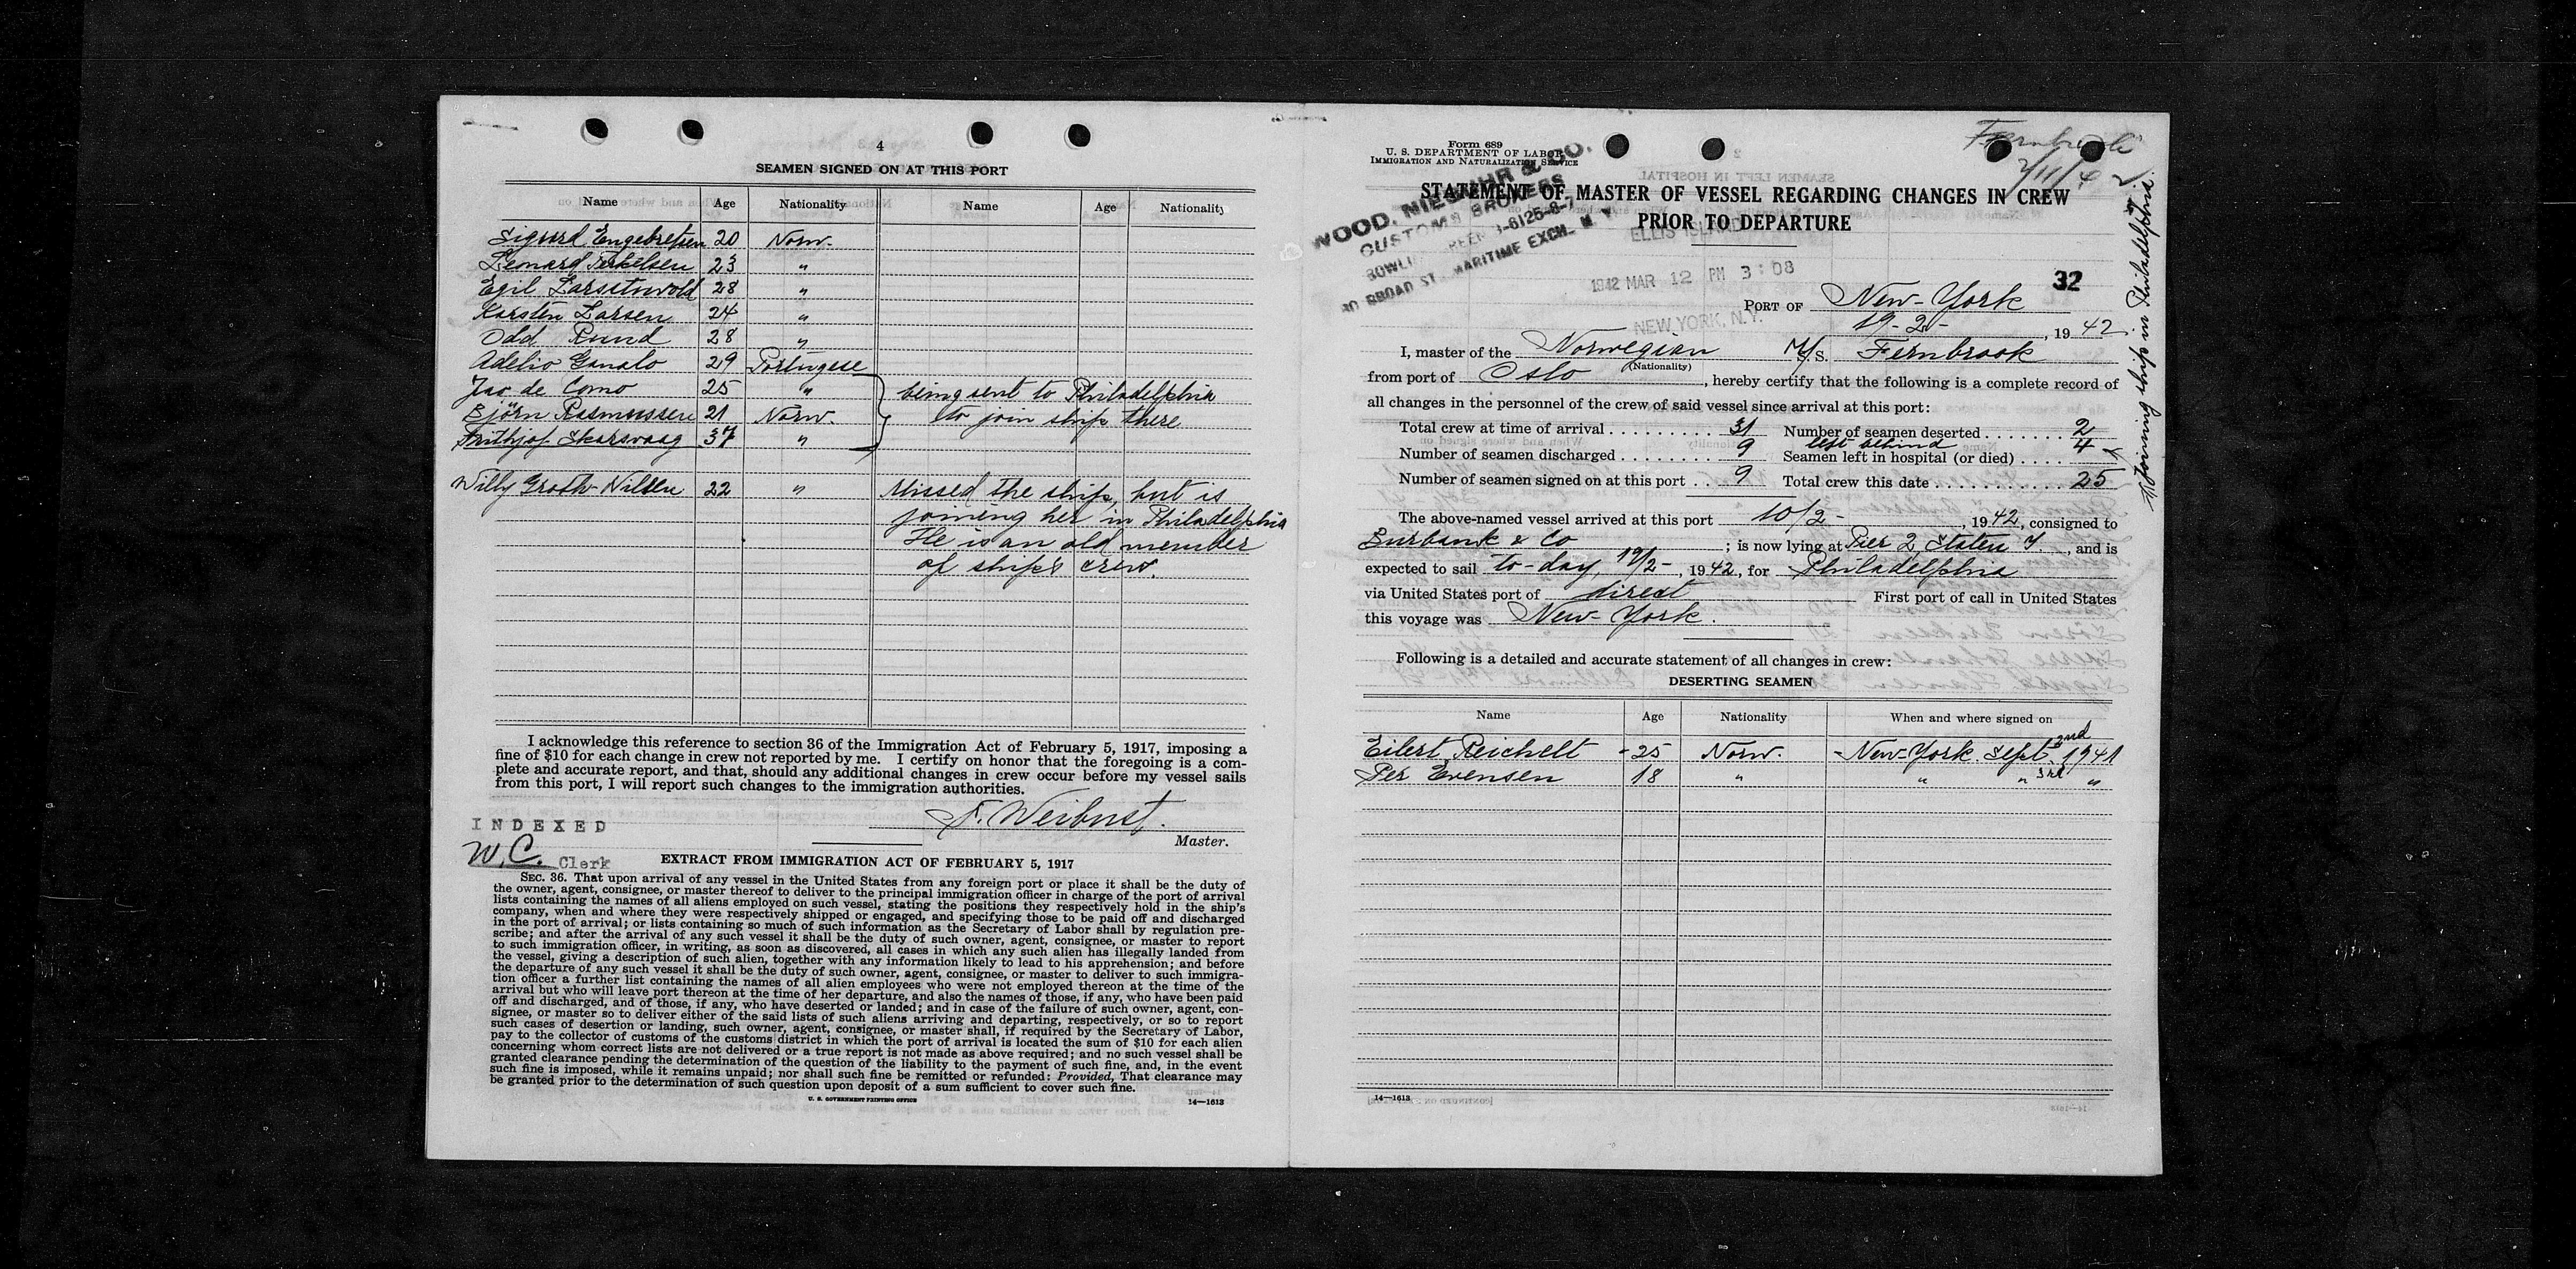 4
SEAMEN SIGNED ON AT THIS PORT
Name Age Nationality Name Age Nationality
Sigurd Engebretsen 20 Norw.
Lenard Terkelsen 23 "
Egil 28 "
Karsten Larsen 24 "
Odd Rund 28 "
Adelio 29 Portugese
de Como 25 "
Björn Rasmussen 21 Norw.
Frithjof Skarsvaag 37 "
being sent to Philadelphia
to join ship there
Willy Groth-Nilsen 22 " Missed the ship, but is
joining her in Philadelphia
He is an old member
of ship's crew.
I acknowledge this reference to section 36 of the Immigration Act of February 5, 1917, imposing a
fine of $10 for each change in crew not reported by me. I certify on honor that the foregoing is a com-
plete and accurate report, and that, should any additional changes in crew occur before my vessel sails
from this port, I will report such changes to the immigration authorities.
Weibust.
Master.
INDEXED
W.C. Clerk
EXTRACT FROM IMMIGRATION ACT OF FEBRUARY 5, 1917
SEC. 36. That upon arrival of any vessel in the United States from any foreign port or place it shall be the duty of
the owner, agent, consignee, or master thereof to deliver to the principal immigration officer in charge of the port of arrival
lists containing the names of all aliens employed on such vessel, stating the positions they respectively hold in the ship's
company, when and where they were respectively shipped or engaged, and specifying those to be paid off and discharged
in the port of arrival; or lists containing so much of such information as the Secretary of Labor shall by regulation pre-
scribe; and after the arrival of any such vessel it shall be the duty of such owner, agent, consignee, or master to report
to such immigration officer, in writing, as soon as discovered, all cases in which any such alien has illegally landed from
the vessel, giving a description of such alien, together with any information likely to lead to his apprehension; and before
the departure of any such vessel it shall be the duty of such owner, agent, consignee, or master to deliver to such immigra-
tion officer a further list containing the names of all alien employees who were not employed thereon at the time of the
arrival but who will leave port thereon at the time of her departure, and also the names of those, if any, who have been paid
off and discharged, and of those, if any, who have deserted or landed; and in case of the failure of such owner, agent, con-
signee, or master so to deliver either of the said lists of such aliens arriving and departing, respectively, or so to report
such cases of desertion or landing, such owner, agent, consignee, or master shall, if required by the Secretary of Labor,
pay to the collector of customs of the customs district in which the port of arrival is located the sum of $10 for each alien
concerning whom correct lists are not delivered or a true report is not made as above required; and no such vessel shall be
granted clearance pending the determination of the question of the liability to the payment of such fine, and, in the event
such fine is imposed, while it remains unpaid; nor shall such fine be remitted or refunded: Provided, That clearance may
be granted prior to the determination of such question upon deposit of a sum sufficient to cover such fine.
U. S. GOVERNMENT PRINTING OFFICE 14—1613
Form 689
U. S. DEPARTMENT OF LABOR
IMMIGRATION AND NATURALIZATION SERVICE
Fernbrook
2/11/42
WOOD, NIEBUHR & CO.
CUSTOMS BROKERS
80 BROAD ST. MARITIME EXCH. N. Y.
STATEMENT OF MASTER OF VESSEL REGARDING CHANGES IN CREW
PRIOR TO DEPARTURE
ELLIS ISLAND
1942 MAR 12 PM 3:08
NEW YORK, N.Y.
32
PORT OF New-York
19-2-, 1942.
I, master of the Norwegian M/S. Fernbrook
(Nationality)
from port of Oslo, hereby certify that the following is a complete record of
all changes in the personnel of the crew of said vessel since arrival at this port:
Total crew at time of arrival 31 Number of seamen deserted 2
left behind
Number of seamen discharged 9 Seamen left in hospital (or died) 4 x
Number of seamen signed on at this port 9 Total crew this date 25
x Joining ship in Philadelphia.
The above-named vessel arrived at this port 10/2-, 1942, consigned to
Burbank & Co; is now lying at Pier 2 Staten I., and is
expected to sail to-day, 19/2-, 1942, for Philadelphia
via United States port of direct First port of call in United States
this voyage was New-York.
Following is a detailed and accurate statement of all changes in crew:
DESERTING SEAMEN
Name Age Nationality When and where signed on
Eilert Reichelt - 25 Norw. - New-York. Sept. 2nd 1941
Per Evensen 18 " " " 3rd "
14—1613